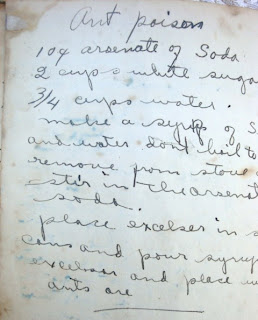 Ant poison
10¢ arsenate of Soda
2 cups white suga
3/4 cups water.
make a syrup of S
and water don't boil to
remove from stove
stir in the arsenat
soda.
place excelser in s
cans and pour syrup
excelser and place w
ants are